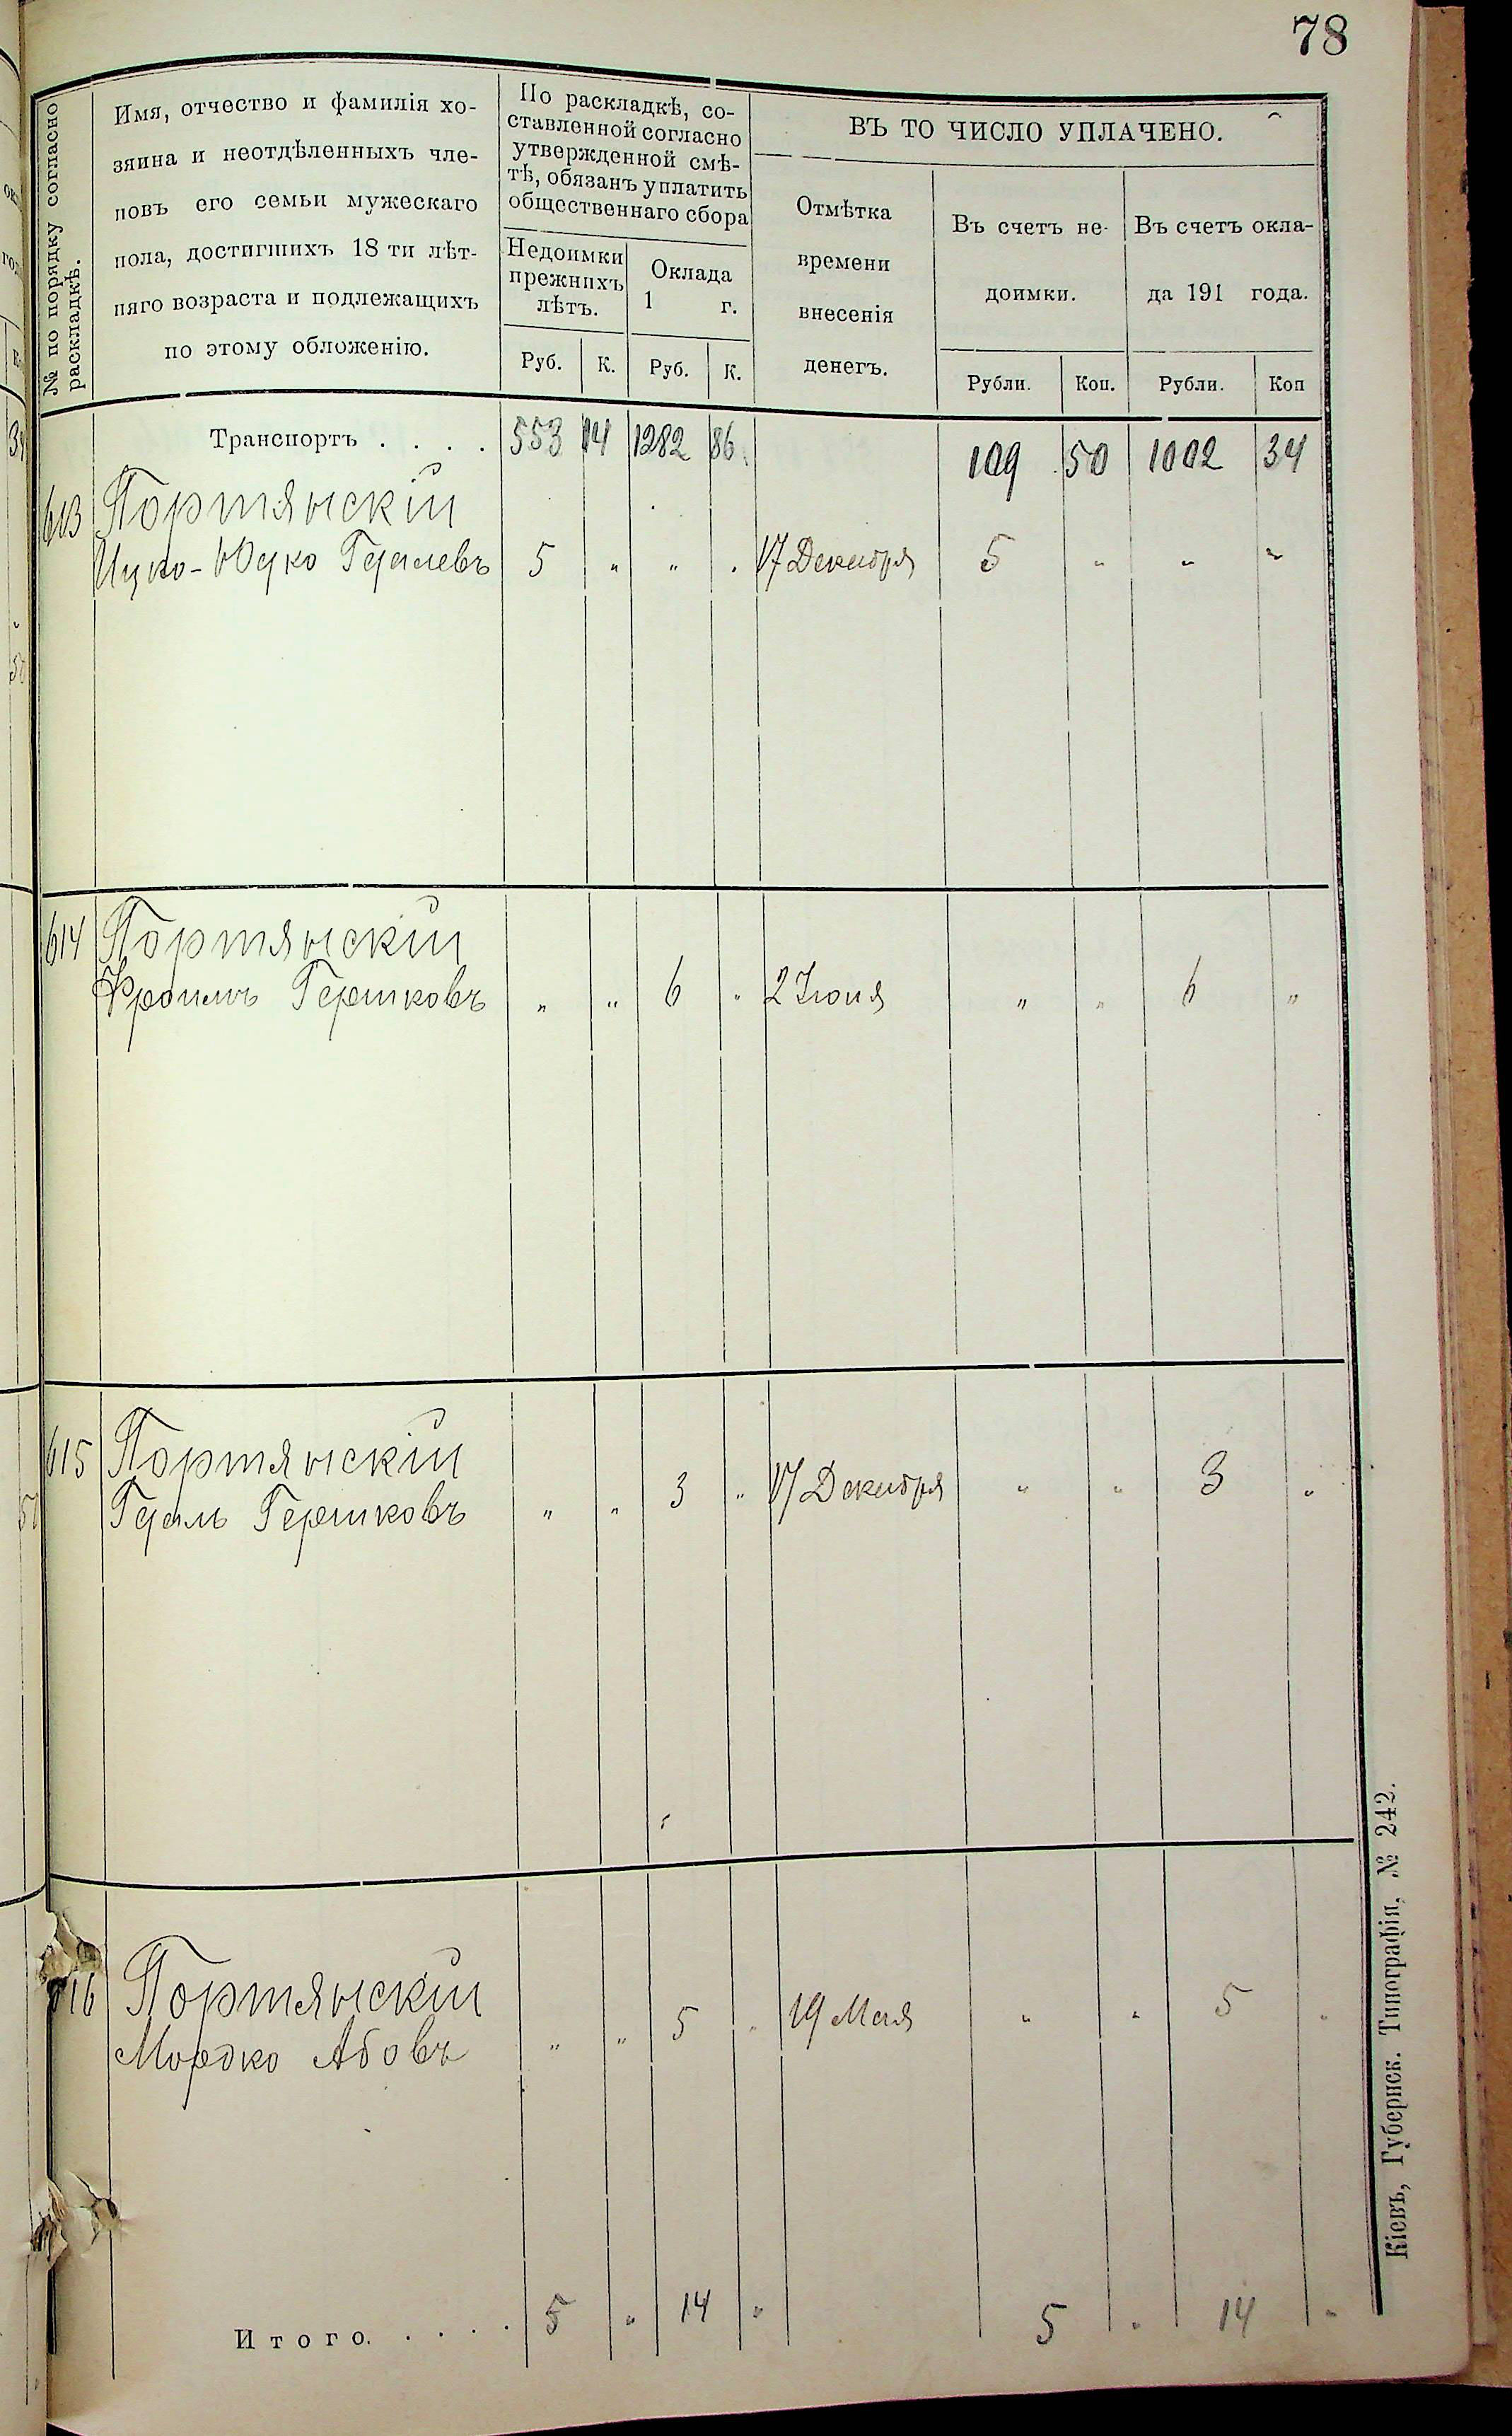 78
№ по порядку согласно
раскладкѣ.
Имя, отчество и фамилія хо-
зяина и неотдѣленныхъ чле-
новъ его семьи мужескаго
пола, достигшихъ 18 ти лѣт-
няго возраста и подлежащихъ
по этому обложенію.
По раскладкѣ, со-
ставленной согласно
утвержденной смѣ-
тѣ, обязанъ уплатить
общественнаго сбора
Недоимки
прежнихъ
лѣтъ.
Руб. К.
Оклада
1 г.
Руб. К.
ВЪ ТО ЧИСЛО УПЛАЧЕНО.
Отмѣтка
времени
внесенія
денегъ.
Въ счетъ не-
доимки.
Рубли. Коп.
Въ счетъ окла-
да 191 года.
Рубли. Коп
Транспортъ . . . . 553 14 1282 86 109 50 1002 34
613 Портянскій
Ицко-Юдко Гдалевъ 5 " " " 17 Декабря 5 " " "
614 Портянскій
Фроимъ Гершковъ " " 6 " 2 Іюня " " 6 "
615 Портянскій
Гдаль Гершковъ " " 3 " 17 Декабря " " 3 "
616 Портянскій
Мордко Абовъ " " 5 " 19 Мая " " 5 "
Итого. . . . . 5 " 14 " 5 " 14 "
Кіевъ, Губернск. Типографія, № 242.